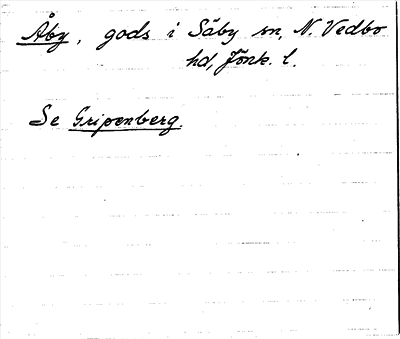 Åby, gods i Säby sn, N. Vedbo
hd, Jönk. l.
Se Gripenberg.